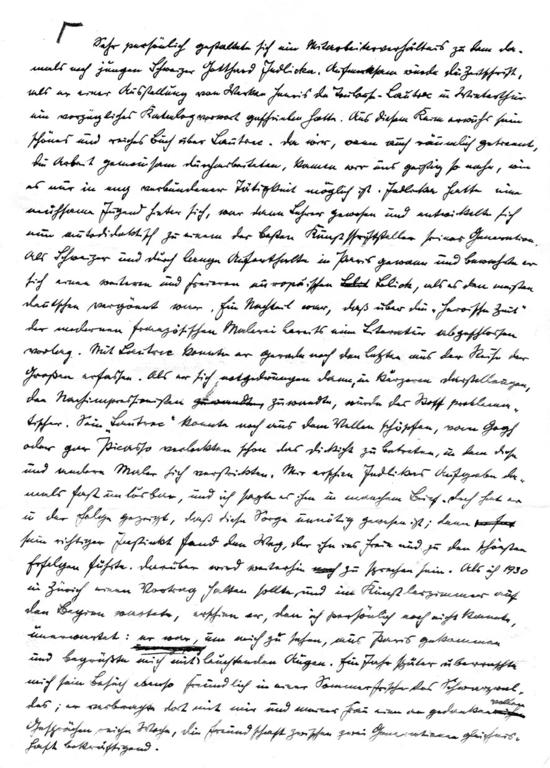 Sehr persönlich gestaltete sich ein Mitarbeiterverhältnis zu dem da-
mals noch jungen Schweizer Gotthard Jedlicka. Aufmerksam wurde die Zeitschrift,
als er einer Ausstellung von Werken Henris de Toulouse-Lautrec in Winterthur
ein vorzügliches Katalogvorwort geschrieben hatte. Aus diesem Kern erwuchs sein
schönes und reiches Buch über Lautrec. Da wir, wenn auch räumlich getrennt,
die Arbeit gemeinsam durcharbeiteten, kamen wir uns geistig so nahe, wie
es nur in eng verbundener Tätigkeit möglich ist. Jedlicka hatte eine
mühsame Jugend hinter sich, war dann Lehrer gewesen und entwickelte sich
nun autodidaktisch zu einem der besten Kunstschriftsteller seiner Generation.
Als Schweizer und durch lange Aufenthalte in Paris gewann und bewahrte er
sich einen weiteren und freieren europäischen Blick, als es den meisten
deutschen vergönnt war. Ein Nachteil war, daß über die "heroische Zeit"
der modernen französischen Malerei bereits eine Literatur abgeschlossen
vorlag. Mit Lautrec konnte er gerade noch den letzten aus der Reihe der
Großen erfassen. Als er sich, notgedrungen dann, in kürzeren Darstellungen,
den Nachimpressionisten zuwandte, wurde der Stoff problema-
tischer. Sein "Lautrec" konnte noch aus dem Vollen schöpfen, vann Gogh
oder gar Picasso verlockten schon das Dickicht zu betreten, in dem diese
und andere Maler sich verstrickten. Mir erschien Jedlickas Aufgabe da-
mals fast unlösbar, und ich sagte es ihm in manchem Brief. Doch hat er
in der Folge gezeigt, daß diese Sorge unnötig gewesen ist; denn
sein richtiger Instinkt fand den Weg, der ihn ins Freie und zu den schönsten
Erfolgen führte. Darüber wird weiterhin zu sprechen sein. Als ich 1930
in Zürich einen Vortrag halten sollte und im Künstlerzimmer auf
den Beginn wartete, erschien er, den ich persönlich noch nicht kannte,
unerwartet: er war, um mich zu sehen, aus Paris gekommen
und begrüßte mich mit leuchtenden Augen. Ein Jahr später überraschte
mich sein Besuch ebenso freundlich in einer Sommerfrische des Schwarzwal-
des; er verbrachte dort mit mir und meiner Frau eine an gedankenvollen
Gesprächen reiche Woche, die Freundschaft zwischen zwei Generationen gleichnis-
haft bekräftigend.